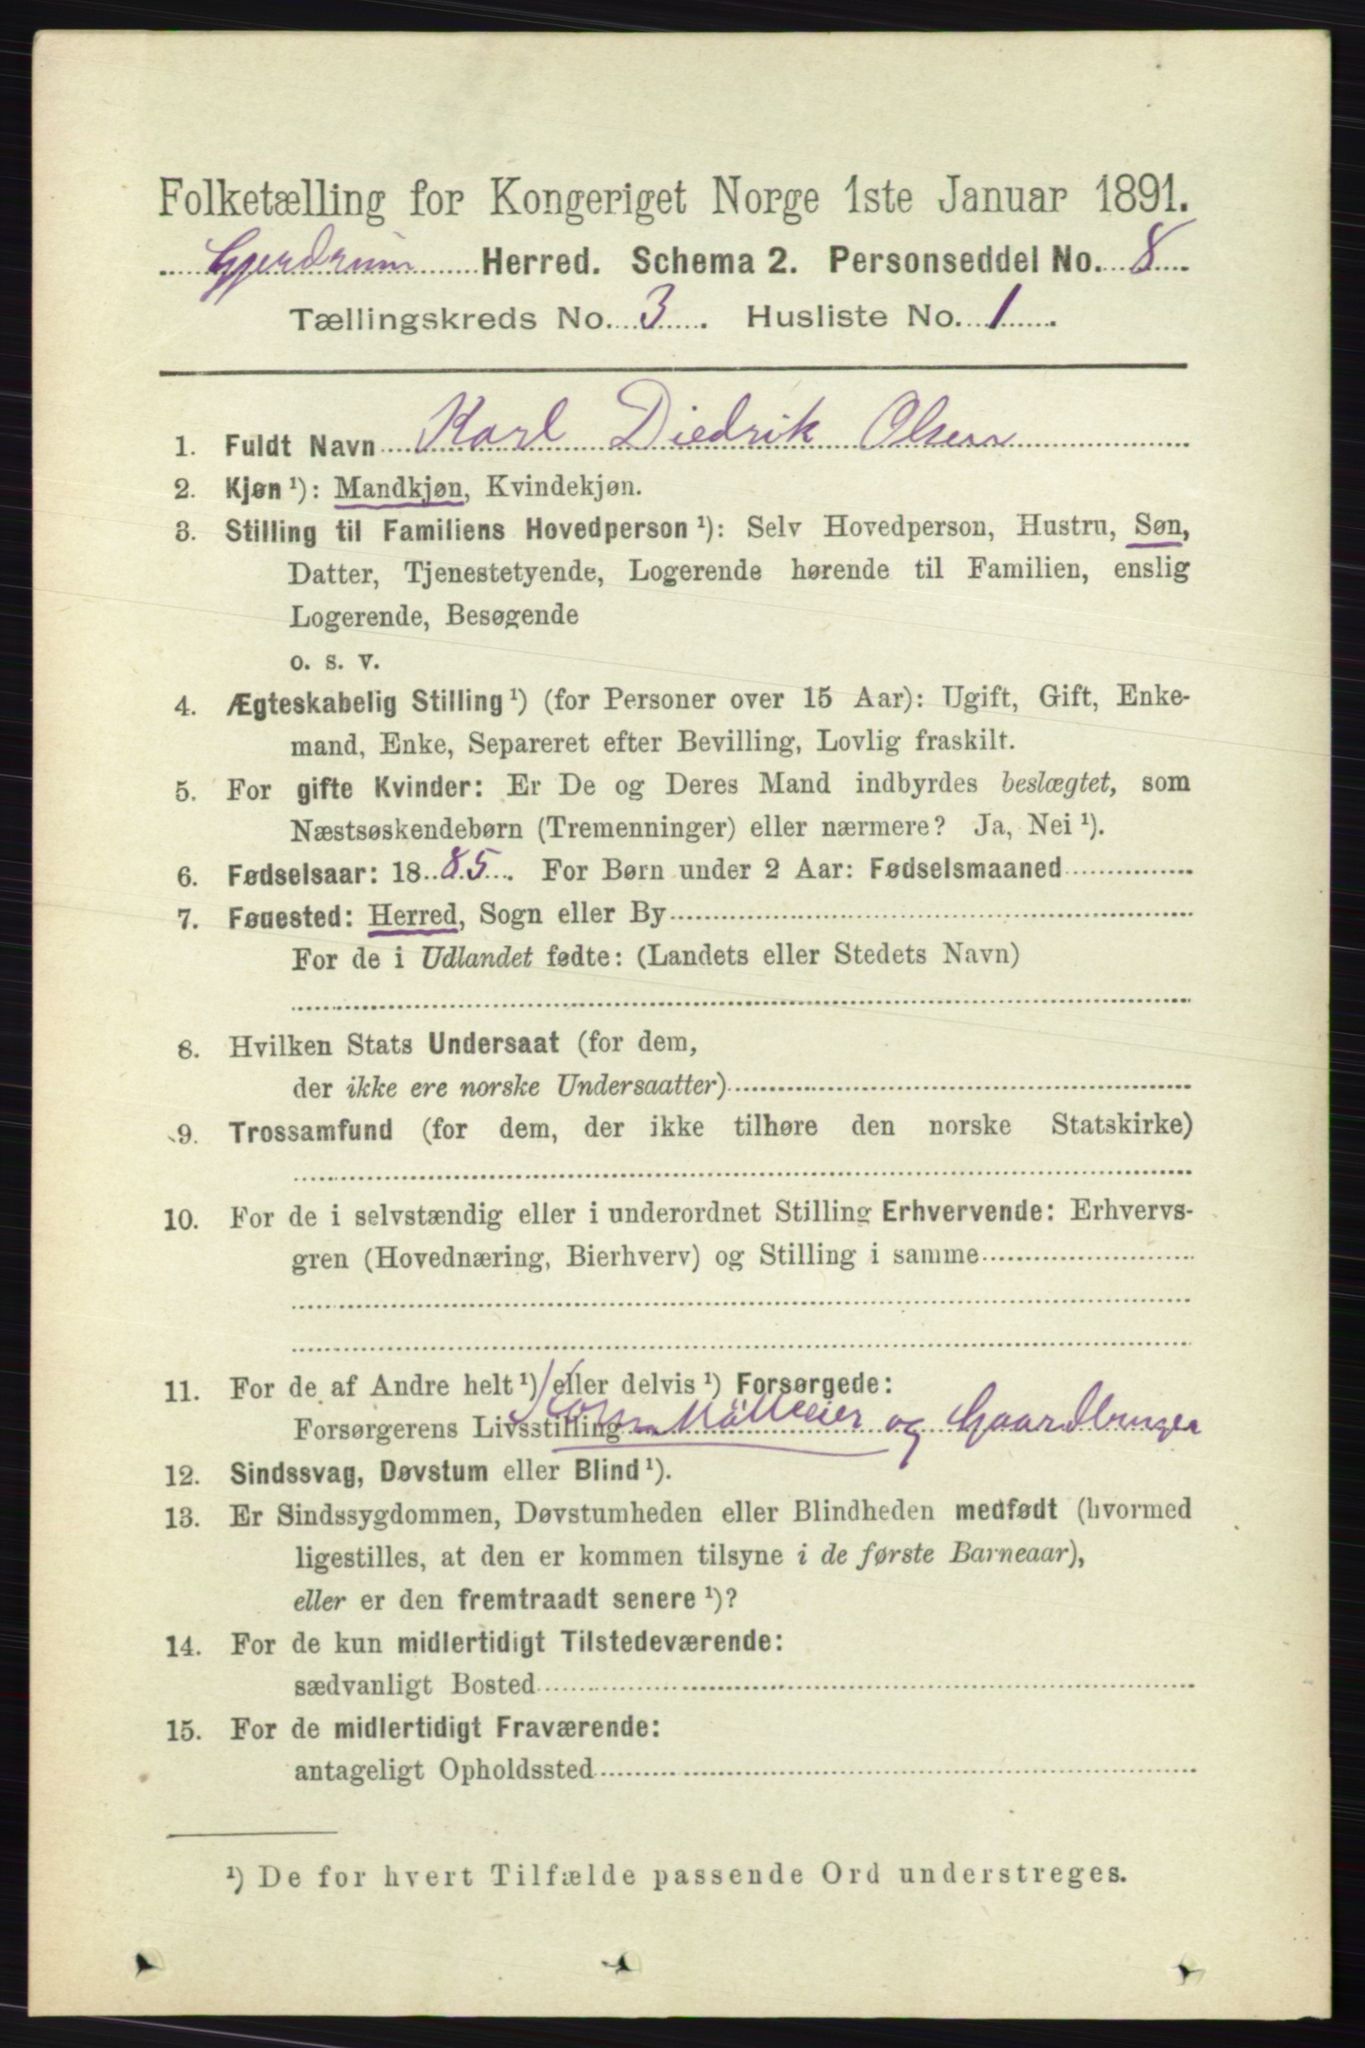 Folketælling for Kongeriget Norge 1ste Januar 1891.
Gjerdrum Herred. Schema 2. Personseddel No. 8
Tællingskreds No. 3. Husliste No. 1
1. Fuldt Navn Karl Diedrik Olsen
2. Kjøn ¹): Mandkjøn, Kvindekjøn.
3. Stilling til Familiens Hovedperson ¹): Selv Hovedperson, Hustru, Søn,
Datter, Tjenestetyende, Logerende hørende til Familien, enslig
Logerende, Besøgende
o. s. v.
4. Ægteskabelig Stilling ¹) (for Personer over 15 Aar): Ugift, Gift, Enke-
mand, Enke, Separeret efter Bevilling, Lovlig fraskilt.
5. For gifte Kvinder: Er De og Deres Mand indbyrdes beslægtet, som
Næstsøskendebørn (Tremenninger) eller nærmere? Ja, Nei ¹).
6. Fødselsaar: 1885. For Børn under 2 Aar: Fødselsmaaned
7. Føuested: Herred, Sogn eller By
For de i Udlandet fødte: (Landets eller Stedets Navn)
8. Hvilken Stats Undersaat (for dem,
der ikke ere norske Undersaatter)
9. Trossamfund (for dem, der ikke tilhøre den norske Statskirke)
10. For de i selvstændig eller i underordnet Stilling Erhvervende: Erhvervs-
gren (Hovednæring, Bierhverv) og Stilling i samme
11. For de af Andre helt ¹) eller delvis ¹) Forsørgede:
Forsørgerens Livsstilling Mölleeier og Gaardbruger
12. Sindssvag, Døvstum eller Blind ¹).
13. Er Sindssygdommen, Døvstumheden eller Blindheden medfødt (hvormed
ligestilles, at den er kommen tilsyne i de første Barneaar),
eller er den fremtraadt senere ¹)?
14. For de kun midlertidigt Tilstedeværende:
sædvanligt Bosted
15. For de midlertidigt Fraværende:
antageligt Opholdssted
¹) De for hvert Tilfælde passende Ord understreges.